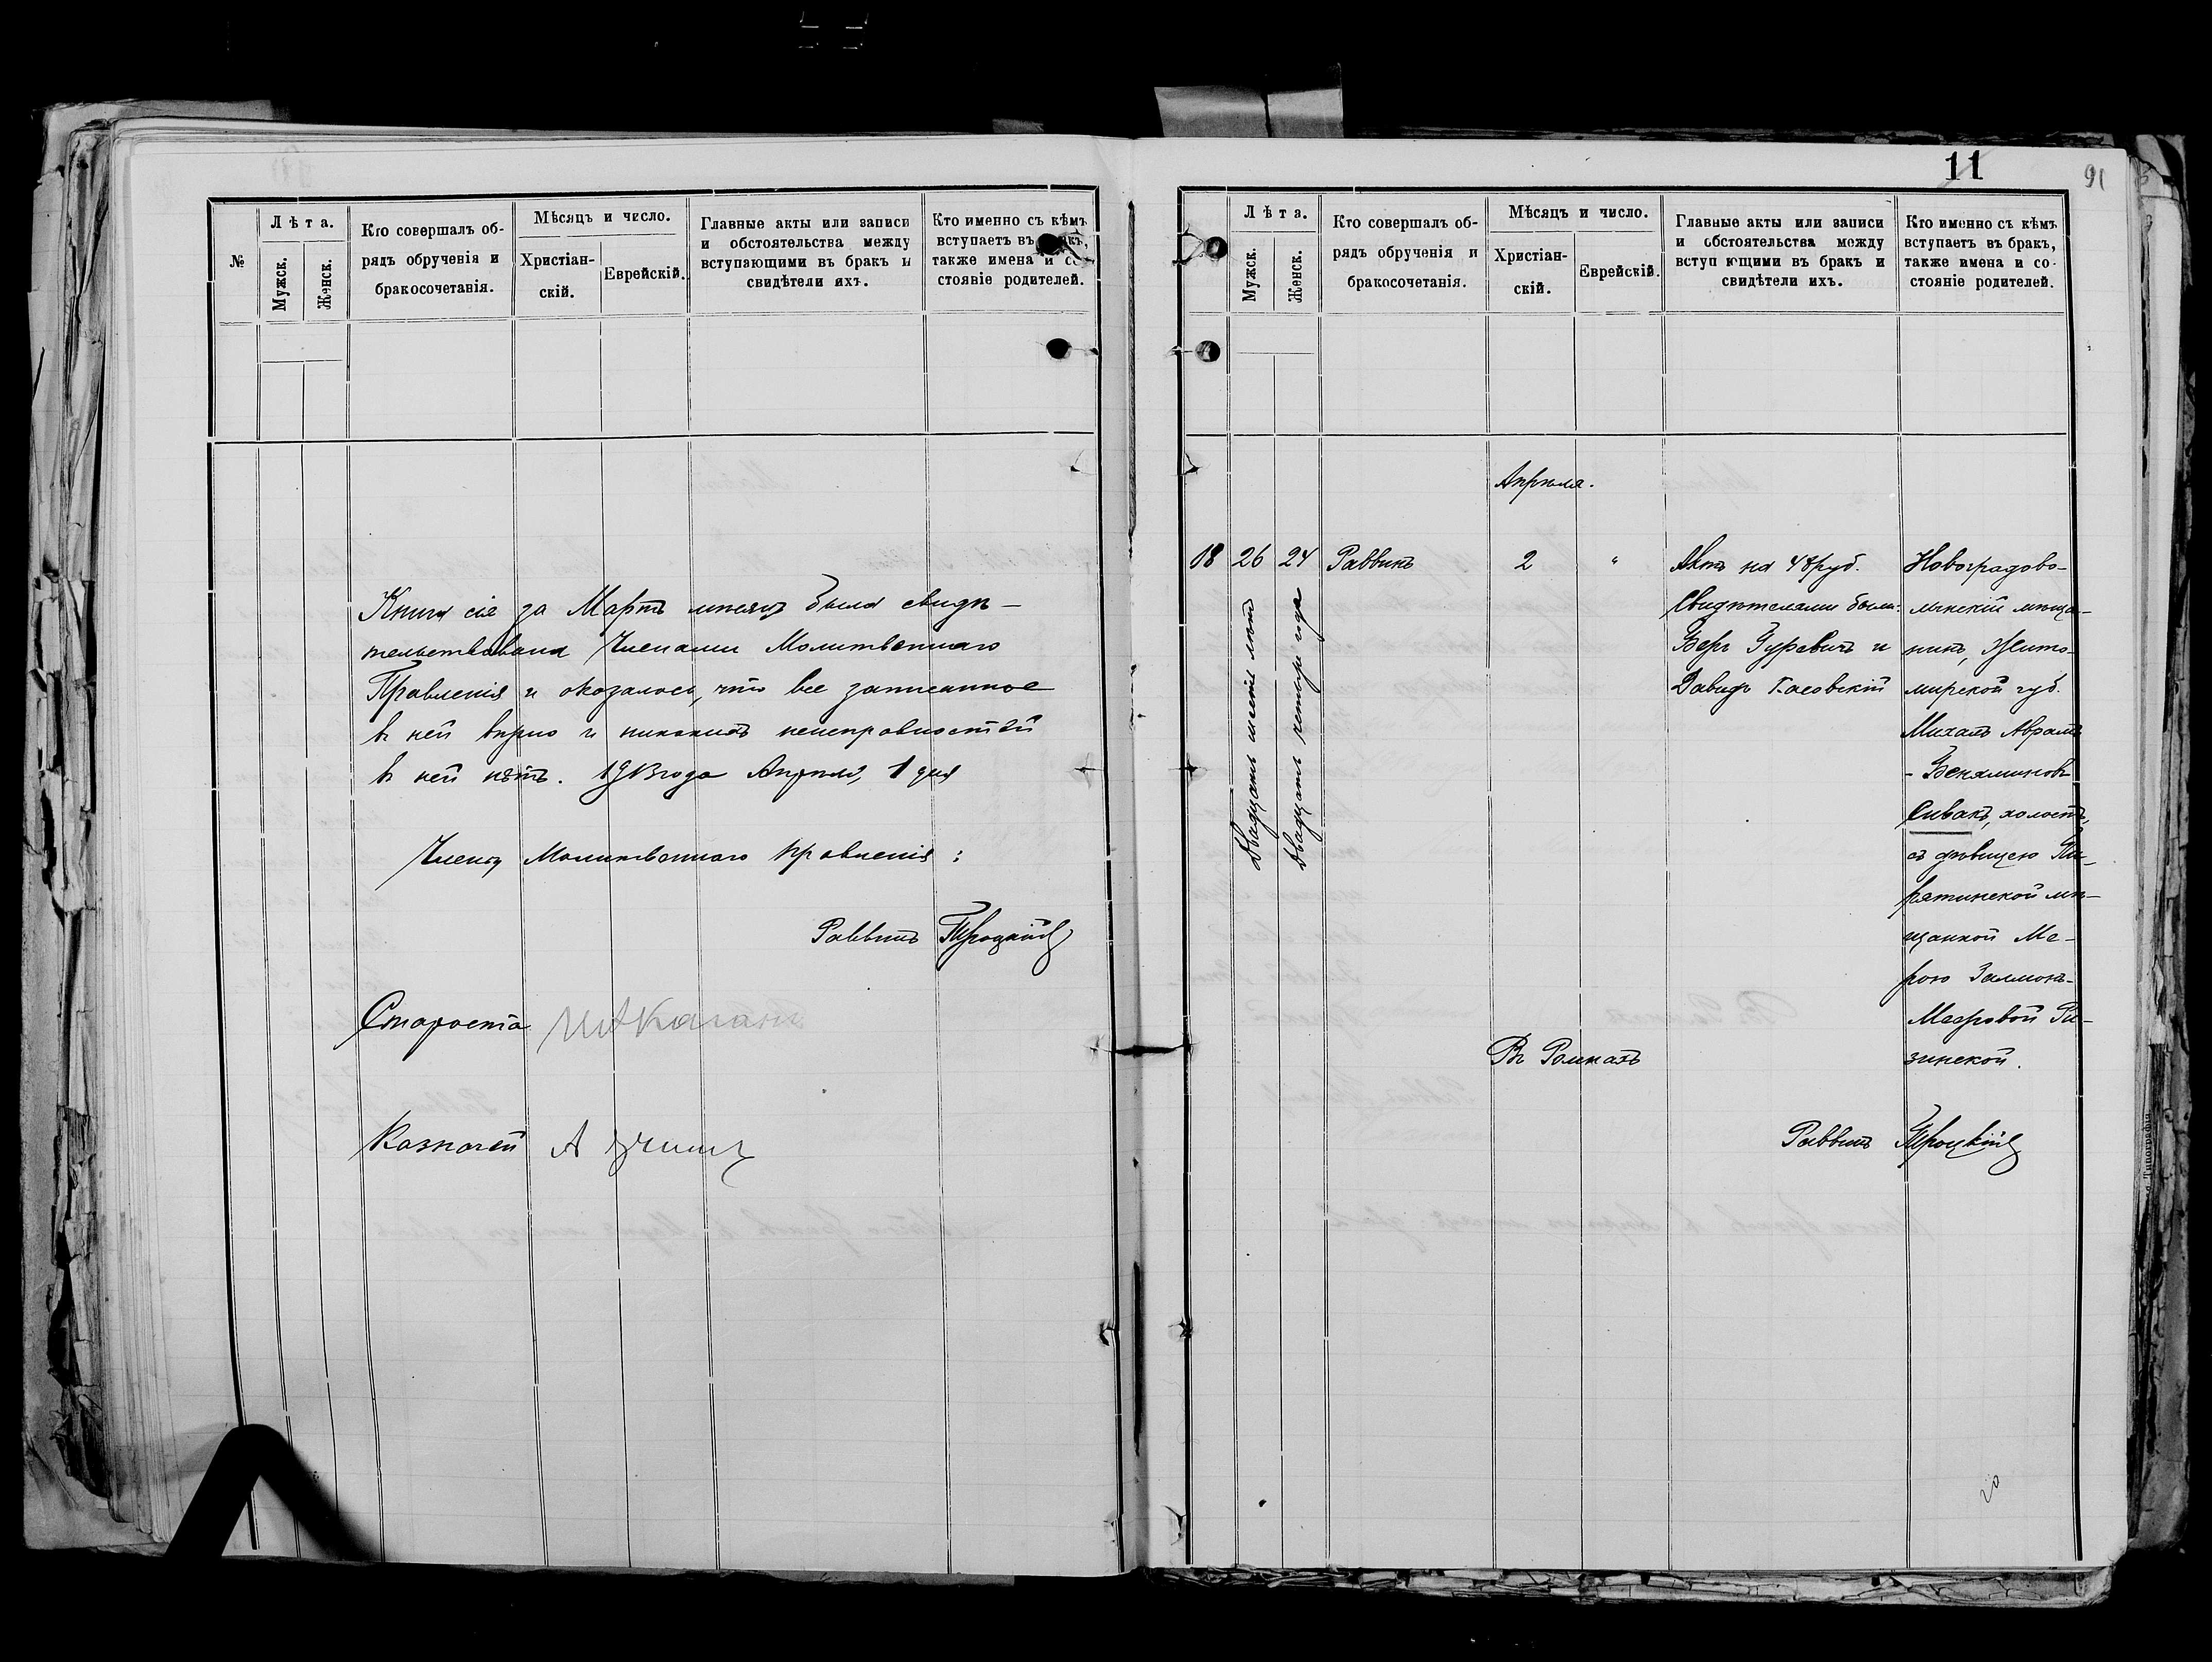 №
Лѣта.
Мужск.
Женск.
Кто совершалъ об-
рядъ обрученія и
бракосочетанія.
Мѣсяцъ и число.
Христіан-
скій.
Еврейскій.
Главные акты или записи
и обстоятельства между
вступающими въ бракъ и
свидѣтели ихъ.
Кто именно съ кѣмъ
вступаетъ въ бракъ,
также имена и со-
стояніе родителей.
Книга сія за Мартъ мѣсяцъ была свидѣ-
тельствована Членами Молитвеннаго
Правленія и оказалось, что все записанное
въ ней вѣрно и никакихъ неисправностей
въ ней нѣтъ. 1913 года Апрѣля, 1 дня
Члены Молитвеннаго правленія:
Раввинъ Троцкій
Староста Каганъ
Казначей А
11
91
Лѣта.
Мужск.
Женск.
Кто совершалъ об-
рядъ обрученія и
бракосочетанія.
Мѣсяцъ и число.
Христіан-
скій.
Еврейскій.
Главные акты или записи
и обстоятельства между
вступ ющими въ бракъ и
свидѣтели ихъ.
Кто именно съ кѣмъ
вступаетъ въ бракъ,
также имена и со-
стояніе родителей.
Апрѣля.
18
26
Двадцать шесть лѣтъ
24
Двадцать четыре года
Раввинъ
2
"
Въ Ромнахъ
Актъ на 48 руб.
Свидѣтелями были:
Беръ Гуревичъ и
Давидъ Касовскій
Новоградово-
лынскій мѣща-
нинъ, Жито-
мирской губ.
Михалъ Аврамъ
- Веніаминовъ
Сивакъ, холостъ,
съ дѣвицею Пи-
рятинской мѣ-
щанкой Ме-
рою Залмонъ-
Мееровой Ри-
зинской.
Раввинъ Троцкій
20
Типографія